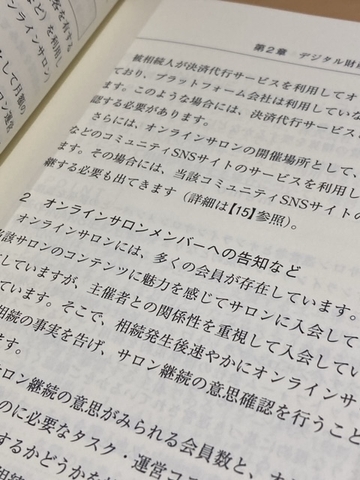 客を有する
ど）を利用し
オンラインサロン
として月額の
第2章　デジタル財産
被相続人が決済代行サービスを利用してオ
ており、プラットフォーム会社は利用していな
ます。このような場合には、決済代行サービス
認する必要があります。
さらには、オンラインサロンの開催場所として、
などのコミュニティSNSサイトのサービスを利用し
ます。その場合には、当該コミュニティSNSサイトの
継する必要も出てきます（詳細は【15】参照）。
2　オンラインサロンメンバーへの告知など
オンラインサロンには、多くの会員が存在しています。
当該サロンのコンテンツに魅力を感じてサロンに入会して
していますが、主催者との関係性を重視して入会してい
ています。そこで、相続発生後速やかにオンラインサ
相続の事実を告げ、サロン継続の意思確認を行うこと
ます。
サロン継続の意思がみられる会員数と、オ
のに必要なタスク・運営コス
するかどうかを
相続